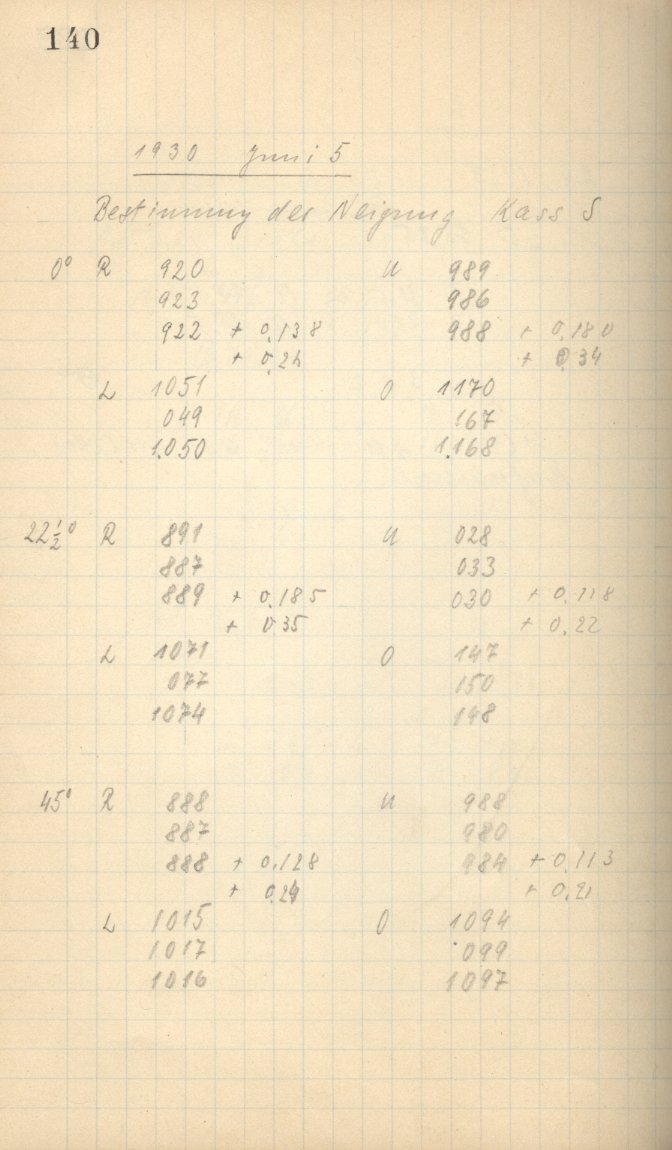 140
1930 Juni 5
Bestimmung der Neigung Kass S
0° R 920 U 989
923 986
922 + 0,138 988 + 0,180
+ 0,26 + 0,34
L 1051 O 1170
049 167
1.050 1.168
22½° R 891 U 028
887 033
889 + 0,185 030 + 0,118
+ 0,35 + 0,22
L 1071 O 147
077 150
1074 148
45° R 888 U 988
887 980
888 + 0,128 984 + 0,113
+ 0,24 + 0,21
L 1015 O 1094
1017 099
1016 1097